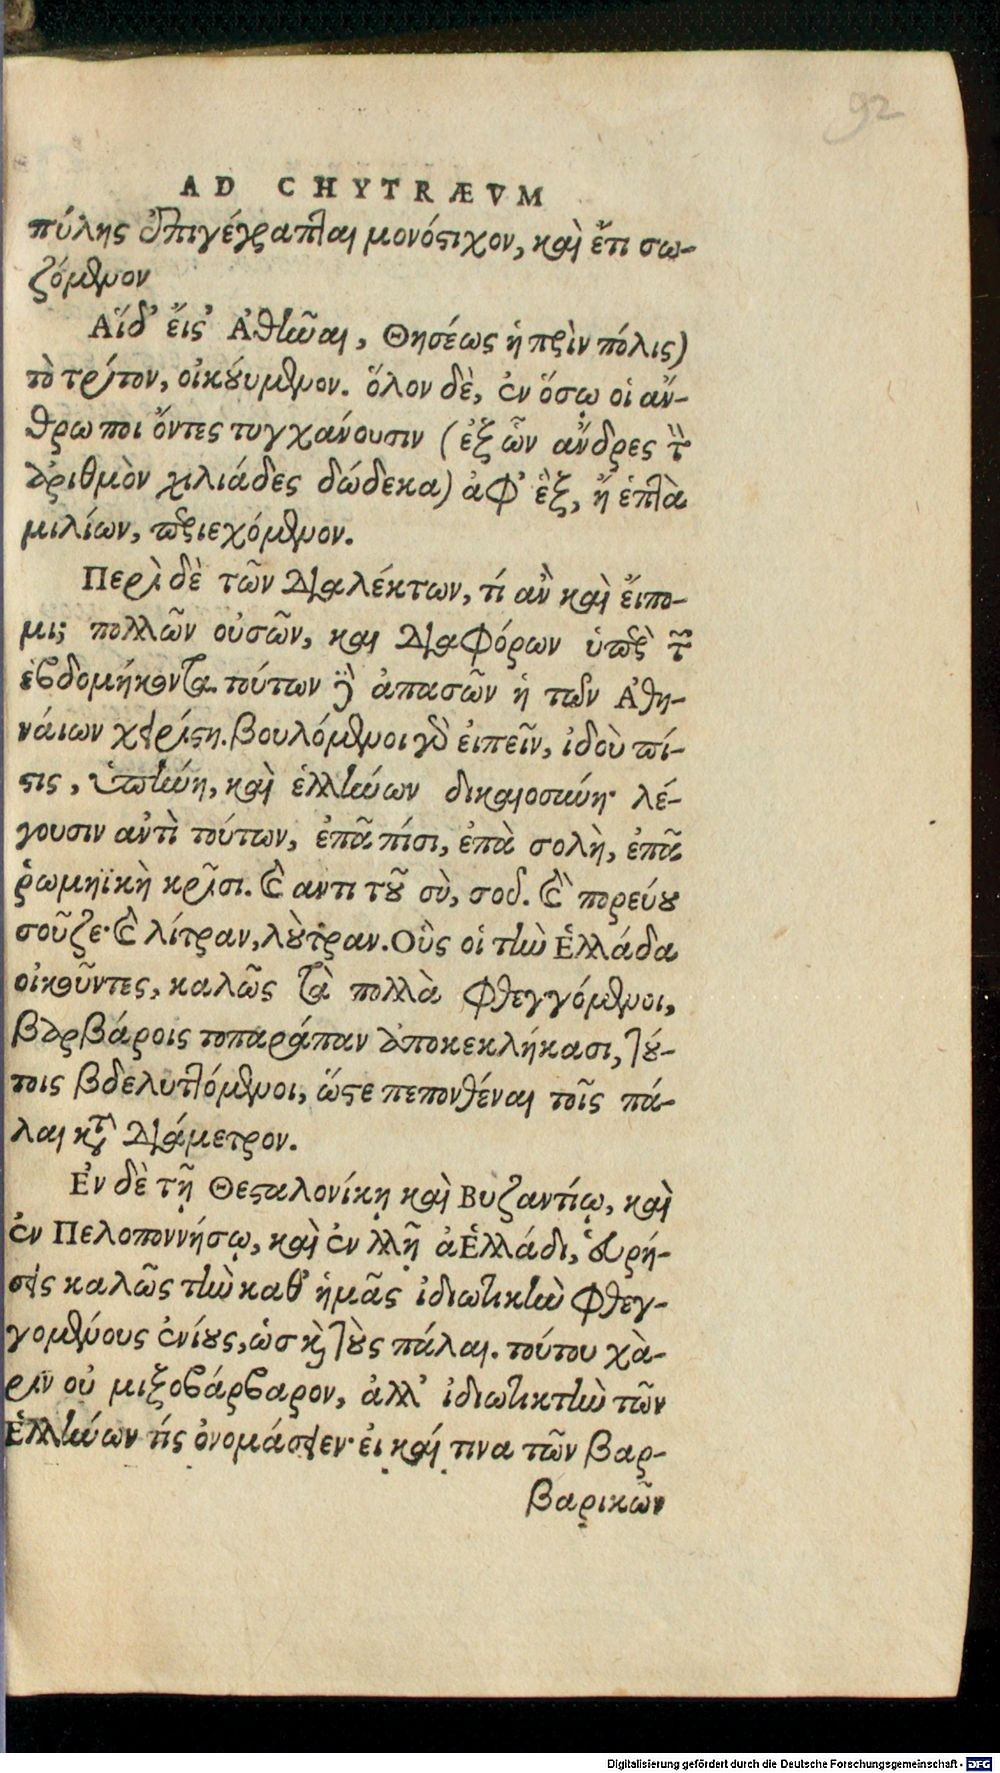 92
AD CHYTRÆVM
πύλης ἐπιγέγραπται μονόστιχον, καὶ ἔτι σω-
ζόμενον
Αἵδ᾽ ἔισ᾽ Ἀθῆναι, Θησέως ἡ πρὶν πόλις)
τὸ τρίτον, οἰκούμενον. ὅλον δὲ, ἐν ὅσῳ οἱ ἄν-
θρωποι ὄντες τυγχάνουσιν (ἐξ ὧν ἄνδρες τὸν
ἀριθμὸν χιλιάδες δώδεκα) ἀφ᾽ ἓξ, ἢ ἑπτὰ
μιλίων, περιεχόμενον.
Περὶ δὲ τῶν διαλέκτων, τί ἂν καὶ ἔιπο-
μι; πολλῶν οὐσῶν, και διαφόρων ὑπὲρ τῶν
ἑβδομήκοντα. τούτων δ᾽ ἁπασῶν ἡ τῶν Ἀθη-
νάιων χειρίστη. βουλόμενοι γὰρ ἐιπεῖν, ἰδοὺ πί-
στις, εὐποιΐη, καὶ ἑλλήνων δικαιοσύνη· λέ-
γουσιν αὐτὶ τούτων, ἐπᾶ πίστι, ἐπὰ στολὴ, ἐπᾶ
ῥωμηϊκὴ κρίσι. καὶ αντι τοῦ σὺ, σοδ. καὶ πορεύου
σοῦζε· καὶ λίτραν, λοὺτραν. Οὓς οἱ τὴν Ἑλλάδα
οἰκοῦντες, καλῶς τὰ πολλὰ φθεγγόμενοι,
βαρβάροις τοπαράπαν ἀποκεκλήκασι, τού-
τοις βδελυττόμενοι, ὥστε πεπονθέναι τοῖς πά-
λαι κατὰ διάμετρον.
Ἐν δὲ τῇ Θεσταλονίκῃ καὶ Βυζαντίῳ, καὶ
ἐν Πελοποννήσῳ, καὶ ἐν ἄλλῃ Ἑλλάδι, εὑρή-
σεις καλῶς τὴν καθ᾽ ἡμᾶς ἰδιωτικὴν φθεγ-
γομένους ἐνίους, ὡς καὶ τοὺς πάλαι. τούτου χὰ-
ριν οὐ μιξοβάρβαρον, ἀλλ᾽ ἰδιωτικτὴν τῶν
Ἑλλήνων τίς ὀνομάσειεν· ἐι καί τινα τῶν βαρ-
βαρικῶν
Digitalisierung gefördert durch die Deutsche Forschungsgemeinschaft - DFG